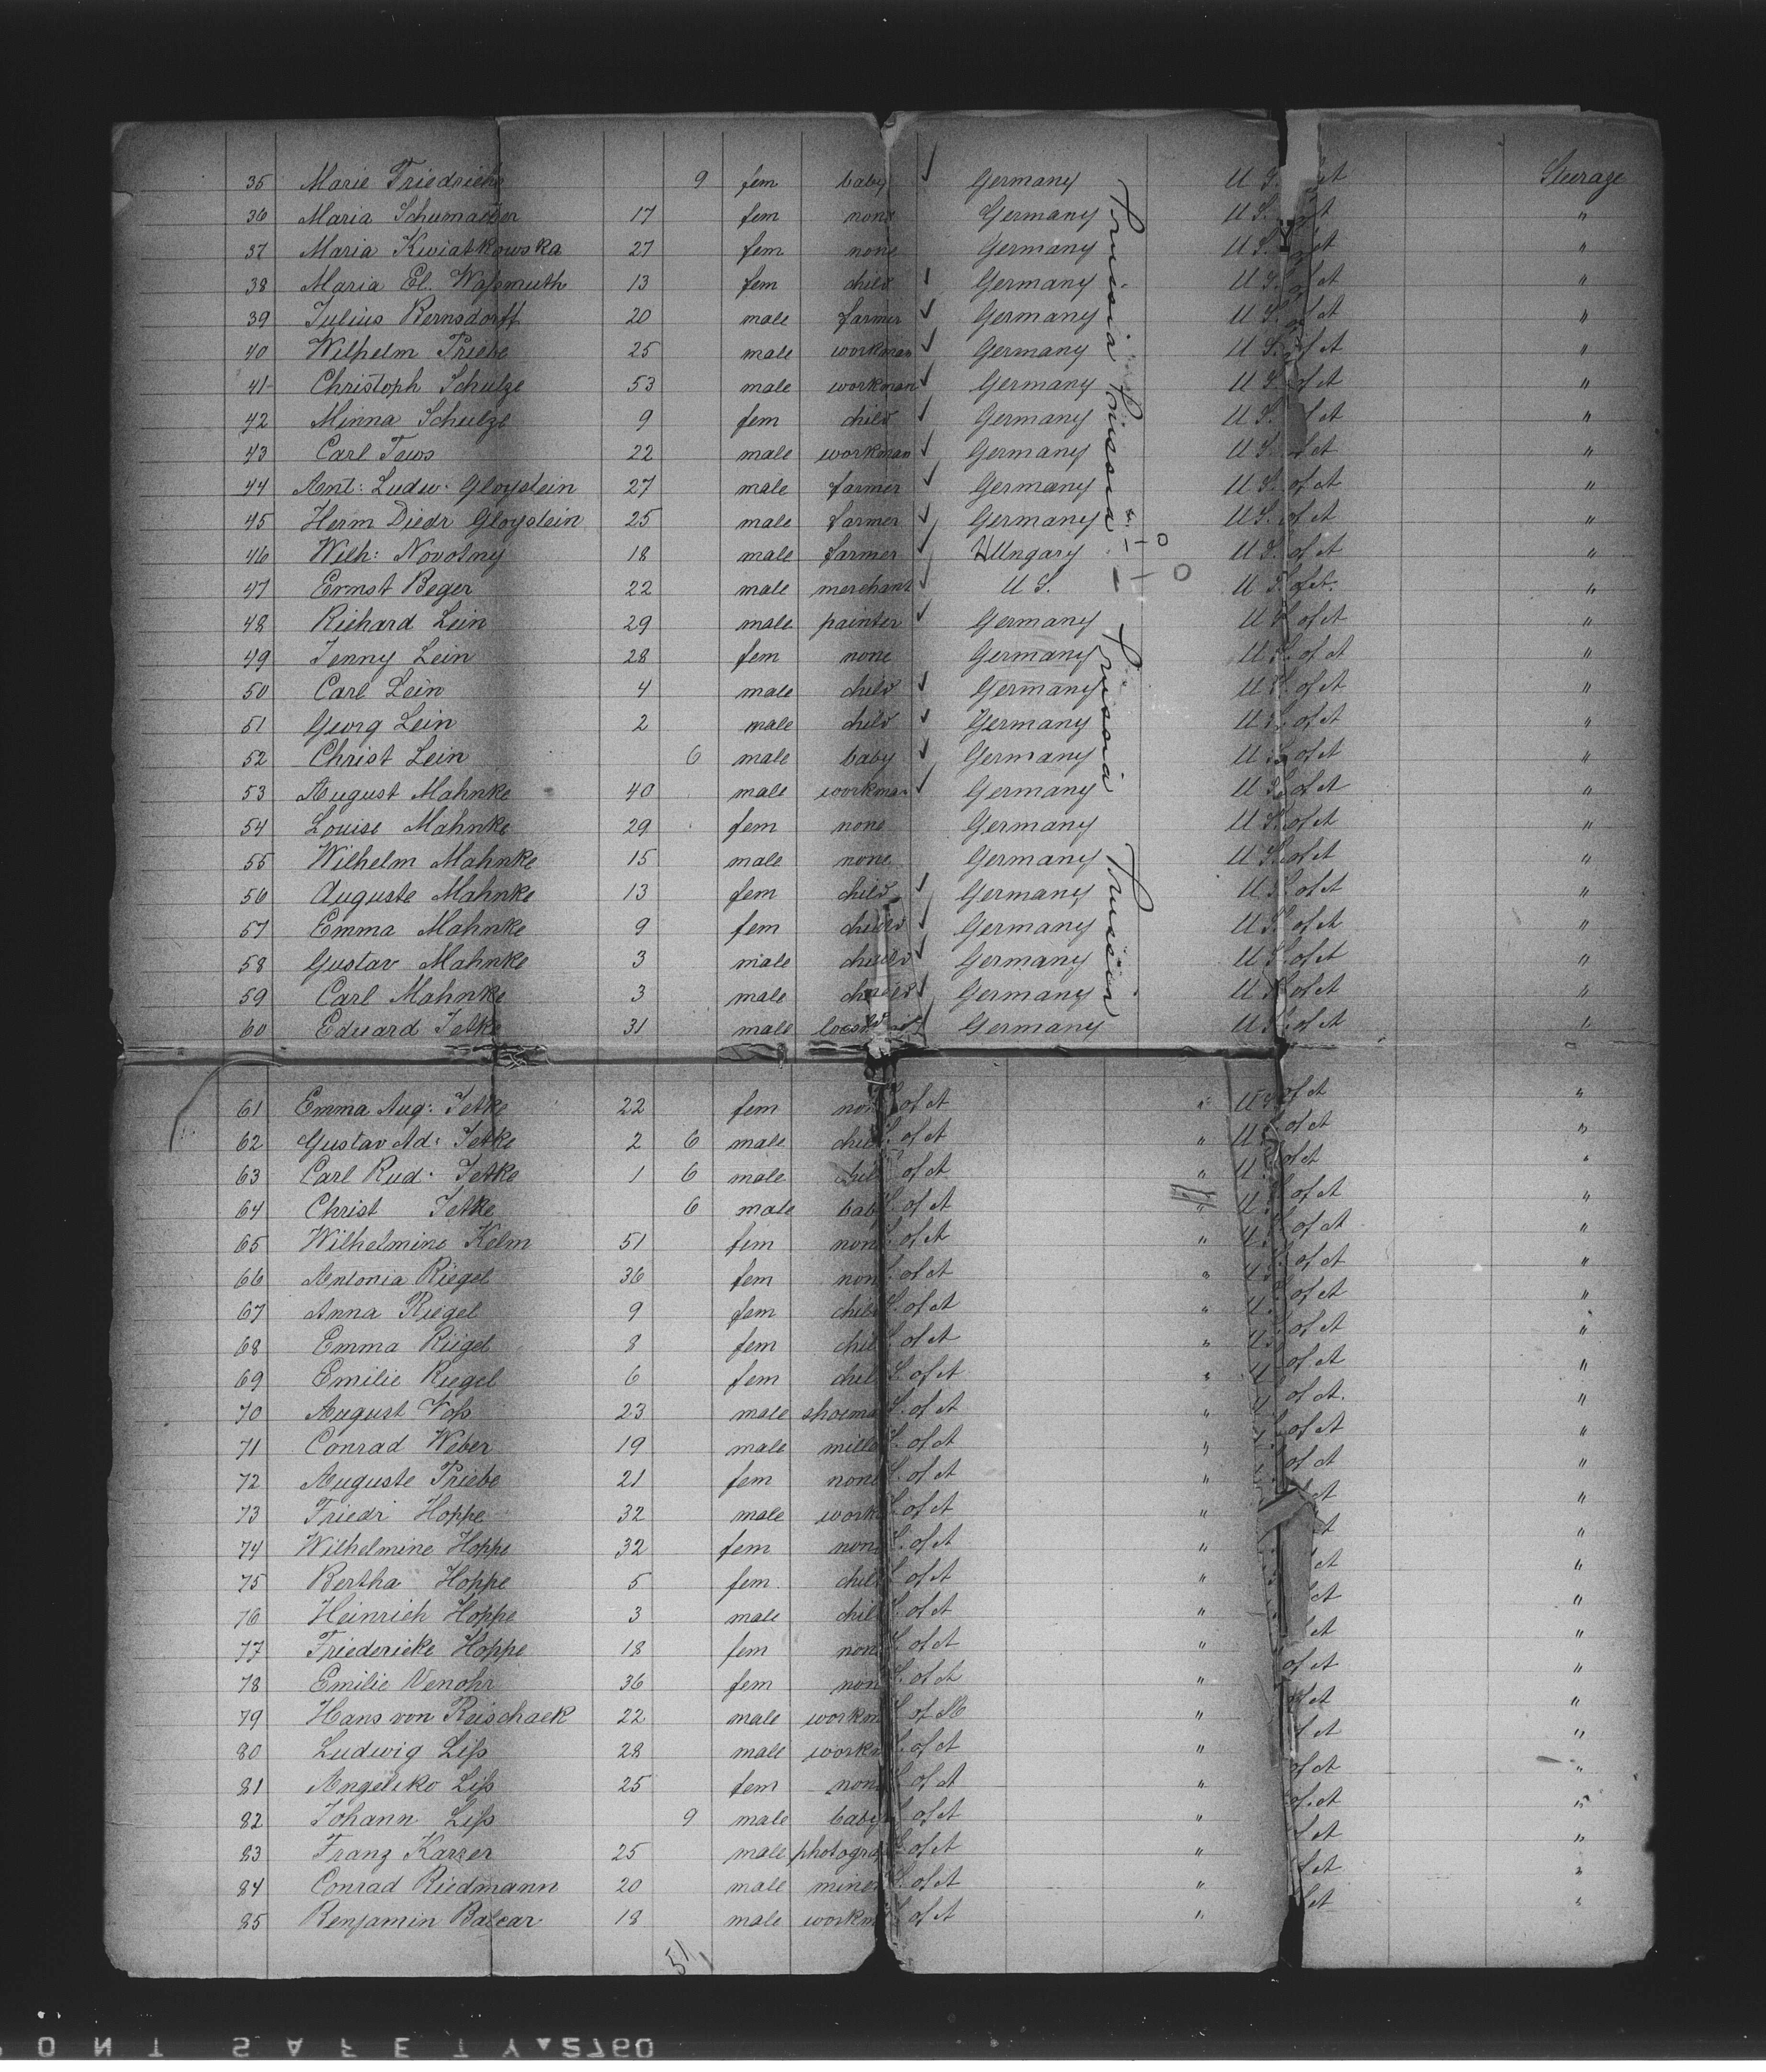 35 Marie Friedrichs 9 fem baby ✓ Germany U S. of A Steerage
36 Maria Schumacher 17 fem none Germany U S. of A "
37 Maria Kwiatkowska 27 fem none Germany U S. of A "
38 Maria El. Waßmuth 13 fem child ✓ Germany U S. of A "
39 Julius Bernsdorff 20 male farmer ✓ Germany U S. of A "
40 Wilhelm Priebe 25 male workman ✓ Germany U S. of A "
41 Christoph Schulze 53 male workman ✓ Germany U S. of A "
42 Minna Schulze 9 fem child ✓ Germany U S. of A "
43 Carl Tews 22 male workman ✓ Germany U S. of A "
44 Ant: Ludw: Gloystein 27 male farmer ✓ Germany U S. of A "
45 Herm Diedr Gloystein 25 male farmer ✓ Germany U S. of A "
46 Wilh: Novotny 18 male farmer ✓ Hungary U S. of A "
47 Ernst Beger 22 male merchant ✓ U S. U S. of A. "
48 Richard Lein 29 male painter ✓ Germany U S. of A "
49 Jenny Lein 28 fem none Germany U S. of A "
50 Carl Lein 4 male child ✓ Germany U S. of A "
51 Georg Lein 2 male child ✓ Germany U S. of A "
52 Christ Lein 6 male baby ✓ Germany U S. of A "
53 August Mahnke 40 male workman ✓ Germany U S. of A "
54 Louise Mahnke 29 fem none Germany U S. of A "
55 Wilhelm Mahnke 15 male none Germany U S. of A "
56 Auguste Mahnke 13 fem child ✓ Germany U S. of A "
57 Emma Mahnke 9 fem child ✓ Germany U S. of A "
58 Gustav Mahnke 3 male child ✓ Germany U S. of A "
59 Carl Mahnke 3 male child ✓ Germany U S. of A "
60 Eduard Jetke 31 male Germany U S. of A "
Prussia Prussia Prussia Prussia
61 Emma Aug: Jetke 22 fem non S. of A " U S. of A "
62 Gustav Ad: Jetke 2 6 male chil S. of A U S. of A "
63 Carl Rud: Jetke 1 6 male chil S. of A " U S. of A "
64 Christ Jetke 6 male bab S. of A " U S. of A "
65 Wilhelmine Kelm 51 fem non S. of A " U S. of A "
66 Antonia Riegel 36 fem non S. of A " U S. of A "
67 Anna Riegel 9 fem chil S. of A " U S. of A "
68 Emma Riegel 8 fem chil S. of A " U S. of A "
69 Emilie Riegel 6 fem chil S. of A " U of A "
70 August Voß 23 male shoema S. of A " U of A. "
71 Conrad Weber 19 male mille S. of A " of A "
72 Auguste Priebe 21 fem none S. of A " of A "
73 Friedr Hoppe 32 male work S. of A " A "
74 Wilhelmine Hoppe 32 fem non S. of A " A "
75 Bertha Hoppe 5 fem. chil S. of A " A "
76 Heinrich Hoppe 3 male chil S. of A " A "
77 Friedericke Hoppe 18 fem non S. of A " A "
78 Emilie Venohr 36 fem non S. of A " of A "
79 Hans von Reischack 22 male workm S. of A " of A "
80 Ludwig Liß 28 male workm S. of A " of A "
81 Angeliko Liß 25 fem non S. of A " of A "
82 Johann Liß 9 male baby S. of A " of A "
83 Franz Karrer 25 male photogra S. of A " of A "
84 Conrad Riedmann 20 male mine S. of A " of A "
85 Benjamin Balcar 18 male workm S. of A " of A "
51
ONT SAFETY▲2760